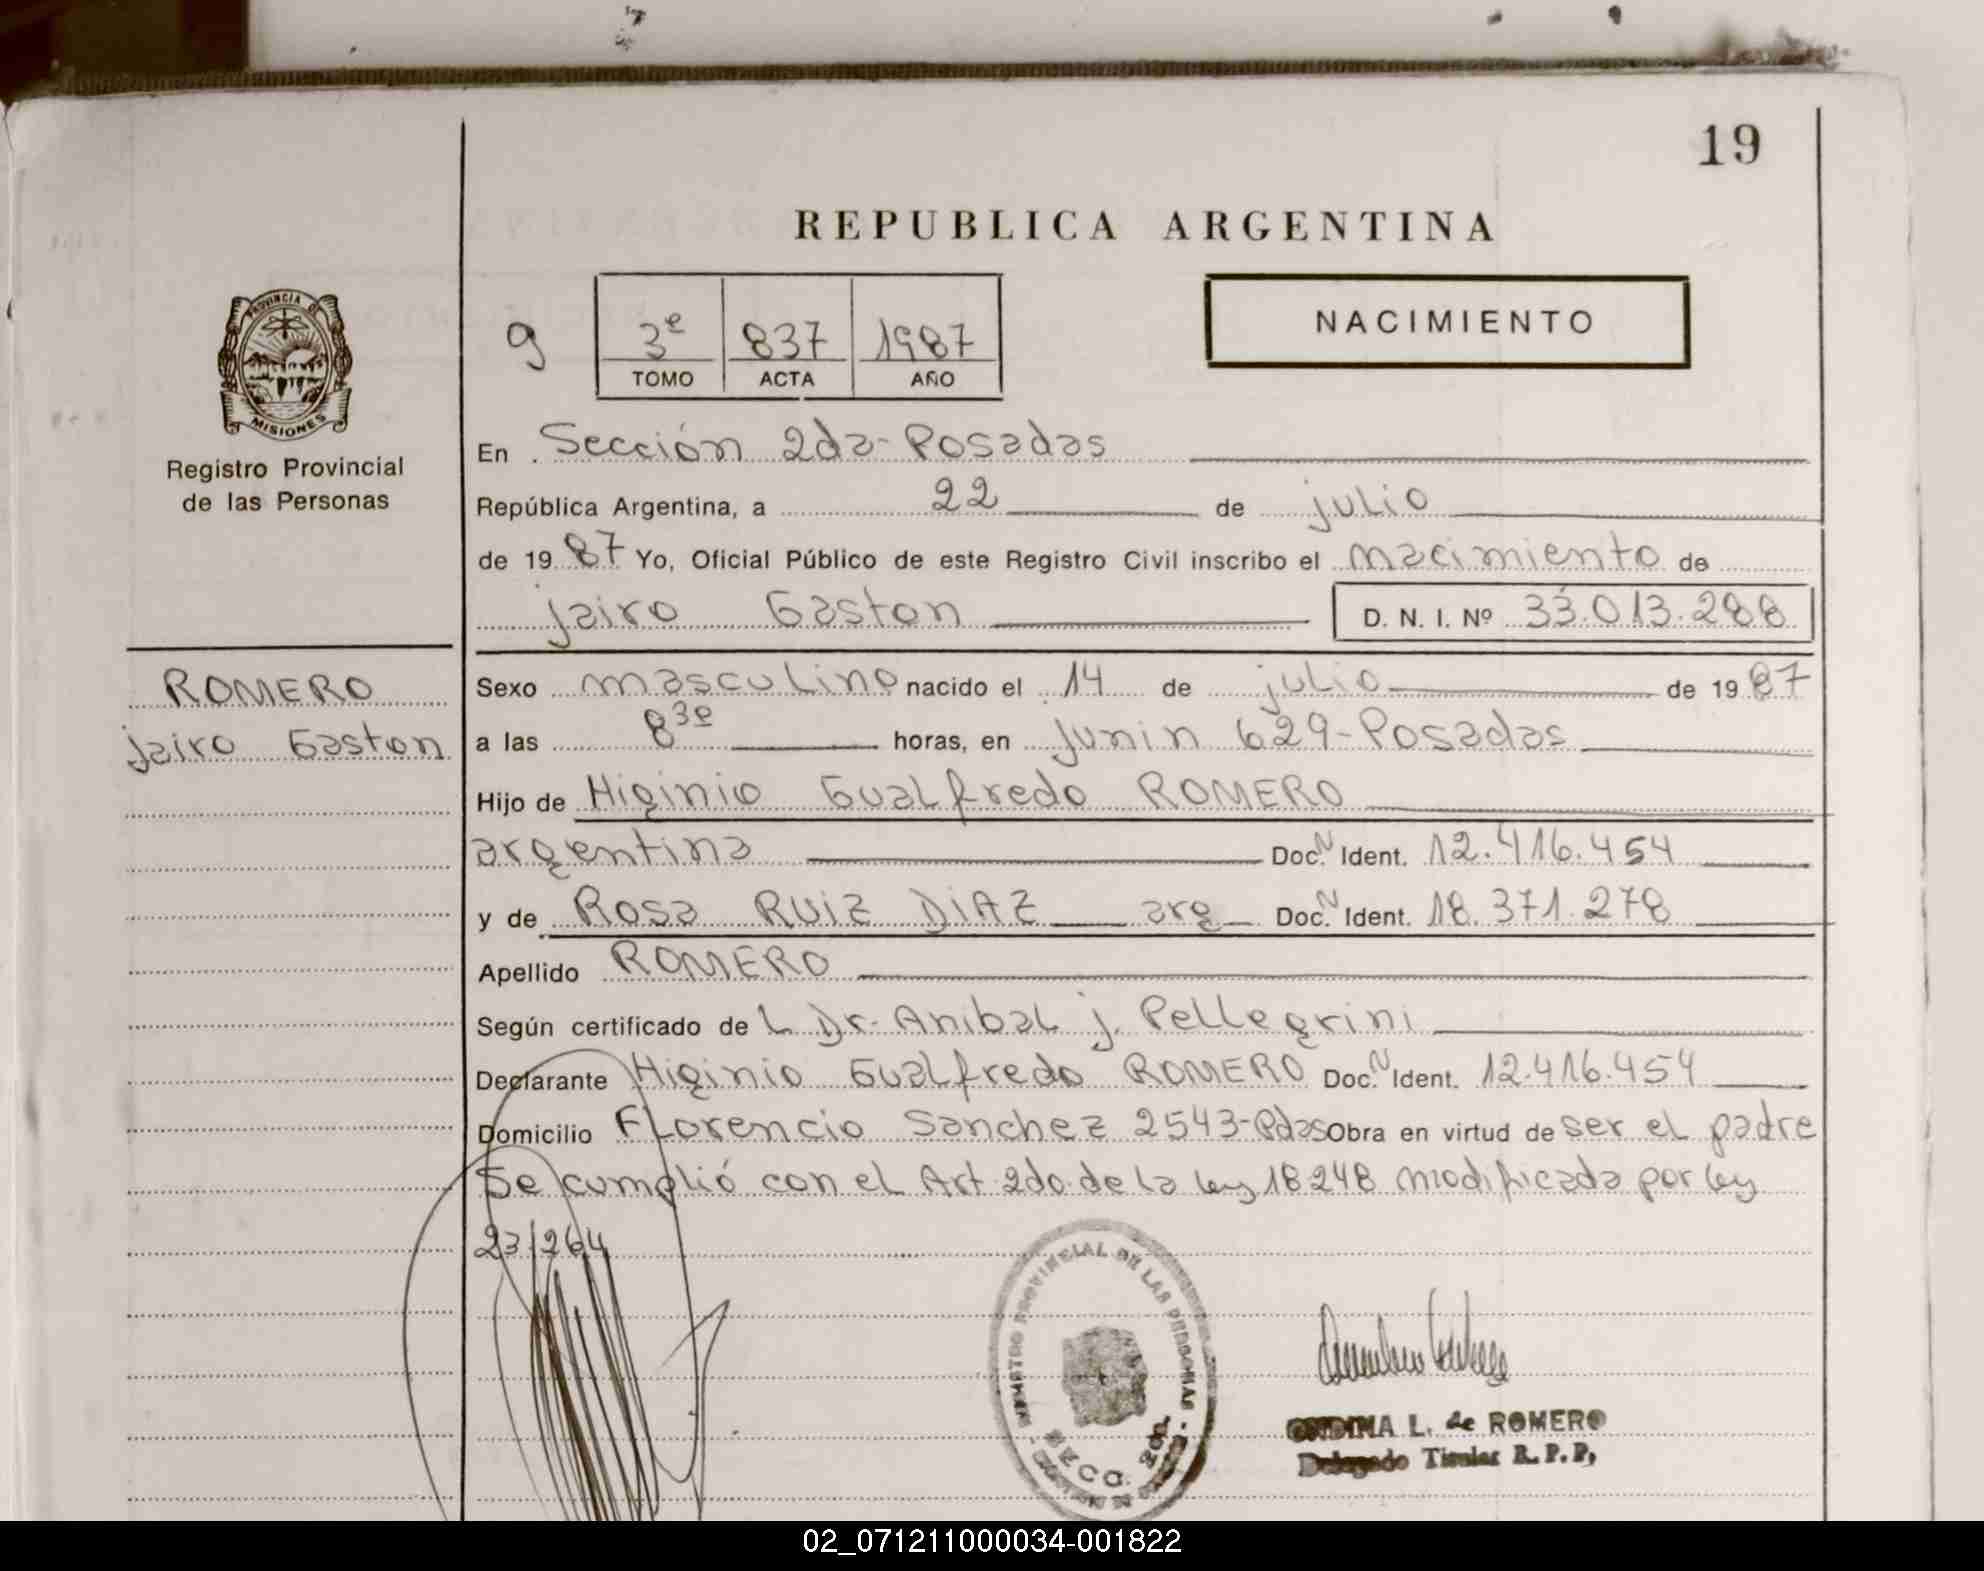 19
REPUBLICA ARGENTINA
PROVINCIA DE
MISIONES
Registro Provincial
de las Personas
9
3º 837 1987
TOMO ACTA AÑO
NACIMIENTO
En Sección 2da-Posadas
República Argentina, a 22 de julio
de 1987 Yo, Oficial Público de este Registro Civil inscribo el nacimiento de
jairo Gaston D. N. I. Nº 33.013.288
ROMERO
jairo Gaston
Sexo masculino nacido el 14 de julio de 1987
a las 8 30 horas, en Junin 629-Posadas
Hijo de Higinio Gualfredo ROMERO
argentina Doc. N Ident. 12.416.454
y de Rosa RUIZ DIAZ arg Doc. N Ident. 18.371.278
Apellido ROMERO
Según certificado de L Dr. Anibal j. Pellegrini
Declarante Higinio Gualfredo ROMERO Doc. N Ident. 12.416.454
Domicilio Florencio Sanchez 2543-Pdas Obra en virtud de ser el padre
Se cumplió con el Art 2do de la ley 18248 modificada por ley
23/264
PROVINCIAL DE LAS PERSONAS
SECC. 2da.
L. de ROMERO
Delegado Titular R. P. P,
02_071211000034-001822